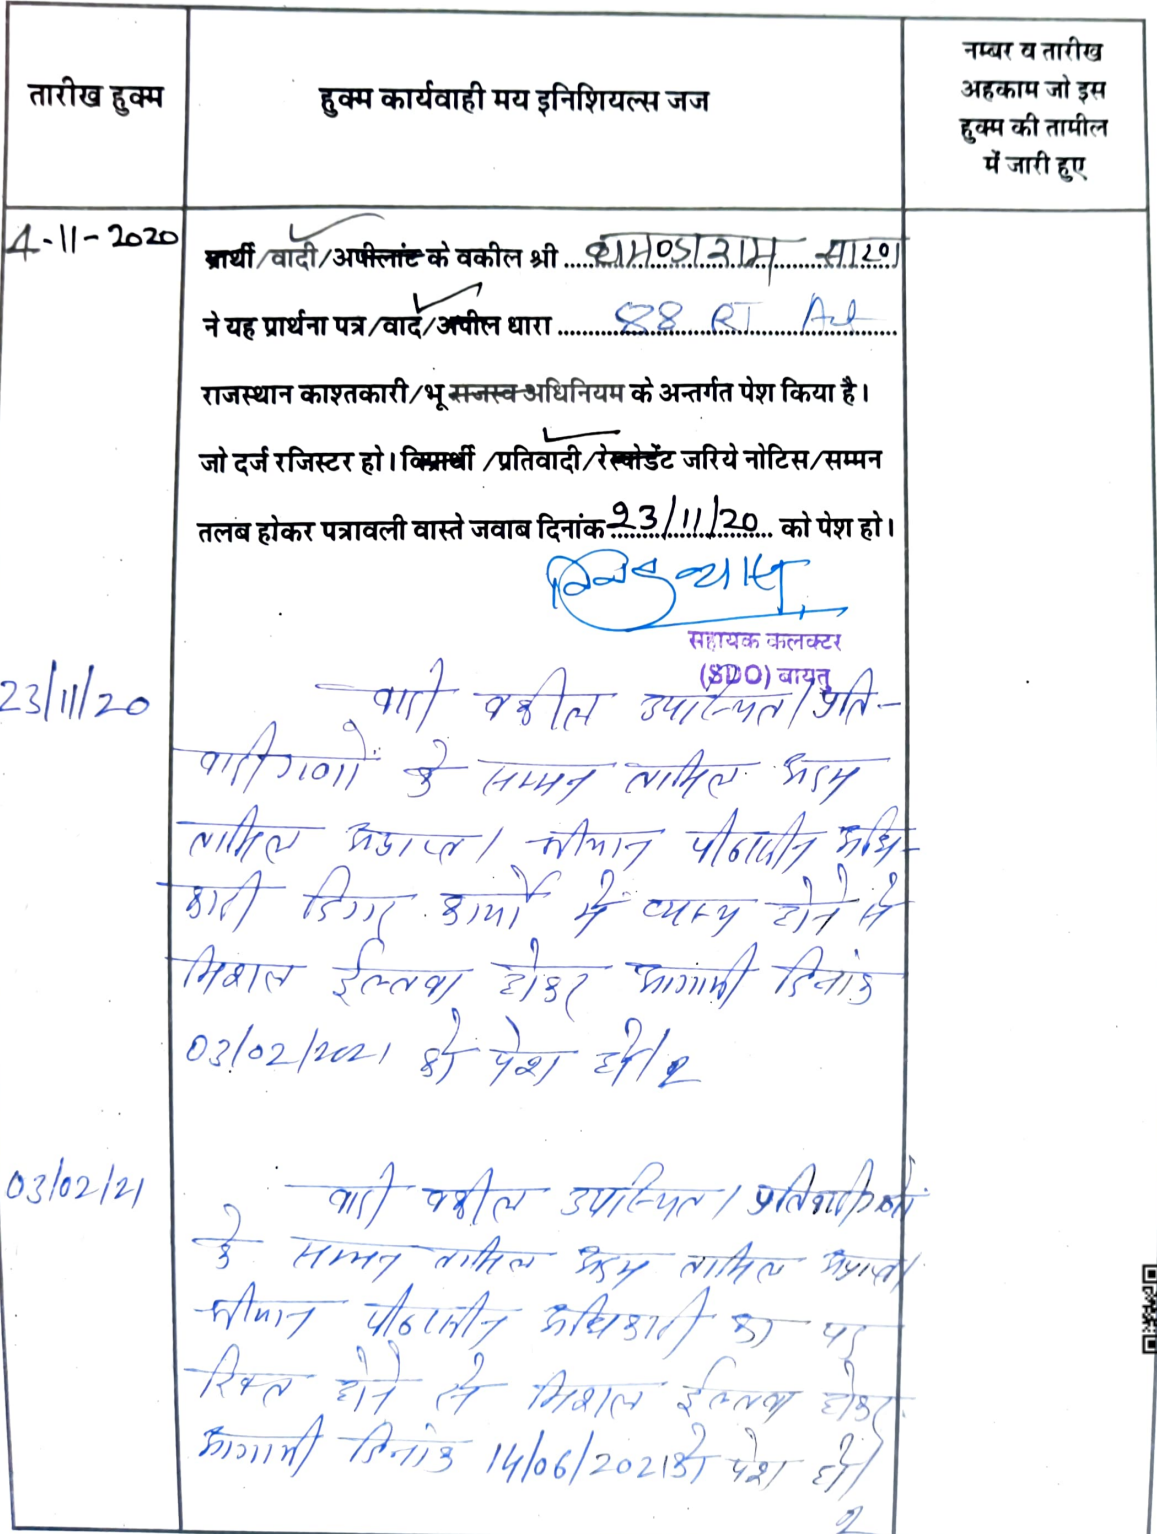 तारीख हुक्म
हुक्म कार्यवाही मय इनिशियल्स जज
नम्बर व तारीख
अहकाम जो इस
हुक्म की तामील
में जारी हुए
4-11-2020
प्रार्थी/वादी/अपीलांट के वकील श्री घमण्डाराम सारण
ने यह प्रार्थना पत्र/वाद/अपील धारा 88 RT Act
राजस्थान काश्तकारी/भू राजस्व अधिनियम के अन्तर्गत पेश किया है।
जो दर्ज रजिस्टर हो। विप्रार्थी/प्रतिवादी/रेस्पोडेंट जरिये नोटिस/सम्मन
तलब होकर पत्रावली वास्ते जवाब दिनांक 23/11/20 को पेश हो।
सहायक कलक्टर
(SDO) बायतु
23/11/20
वादी वकील उपस्थित। प्रति-
वादीगणों के सम्मन तामिल अदम
तामिल अप्राप्त। श्रीमान पीठासीन अधि-
कारी डिगर कार्यो में व्यस्थ होने से
मिशल ईल्तवा होकर आगामी दिनांक
03/02/2021 को पेश हो।
03/02/21
वादी वकील उपस्थित। प्रतिवादीगणों
के सम्मन तामिल अदम तामिल अप्राप्त।
श्रीमान पीठासीन अधिकारी का पद
रिक्त होने से मिशल ईल्तवा होकर
आगामी दिनांक 14/06/2021 को पेश हो।